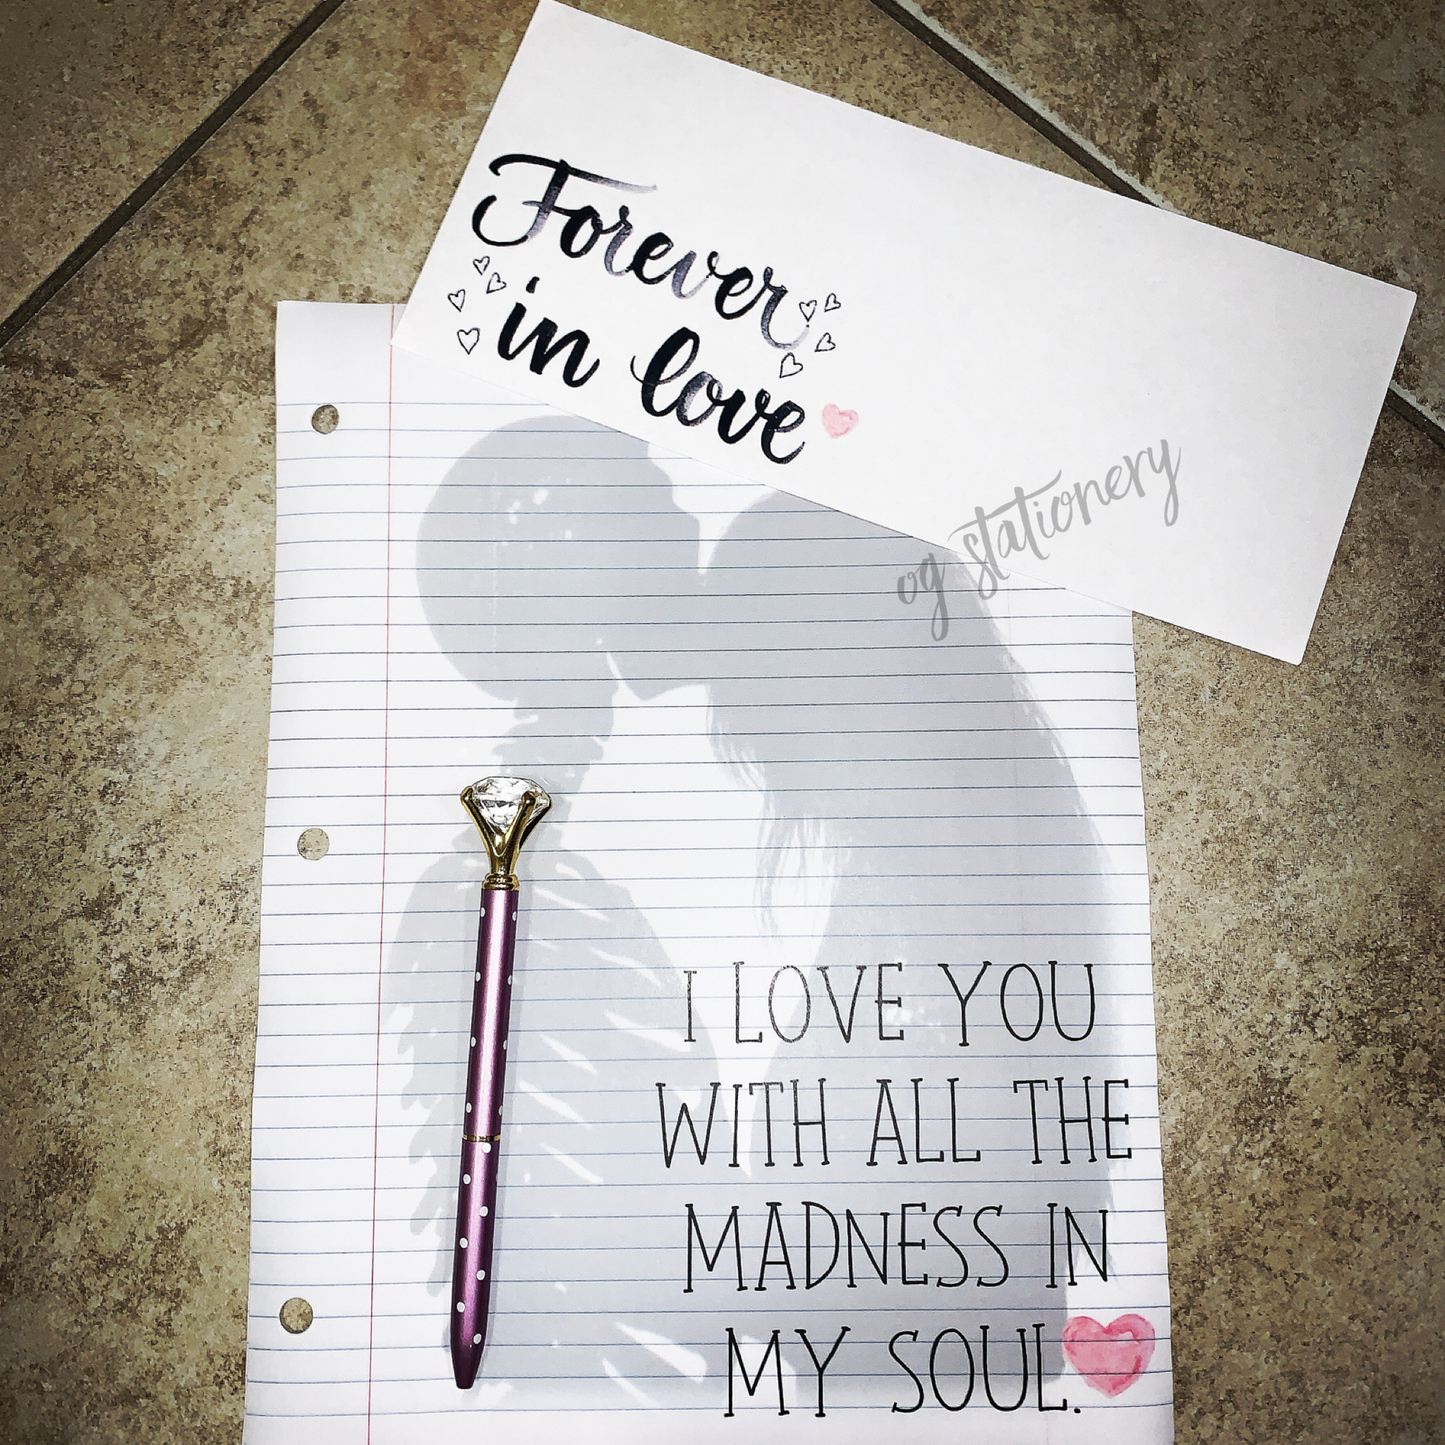 Forever
in love
og stationery
I LOVE YOU
WITH ALL THE
MADNESS IN
MY SOUL.